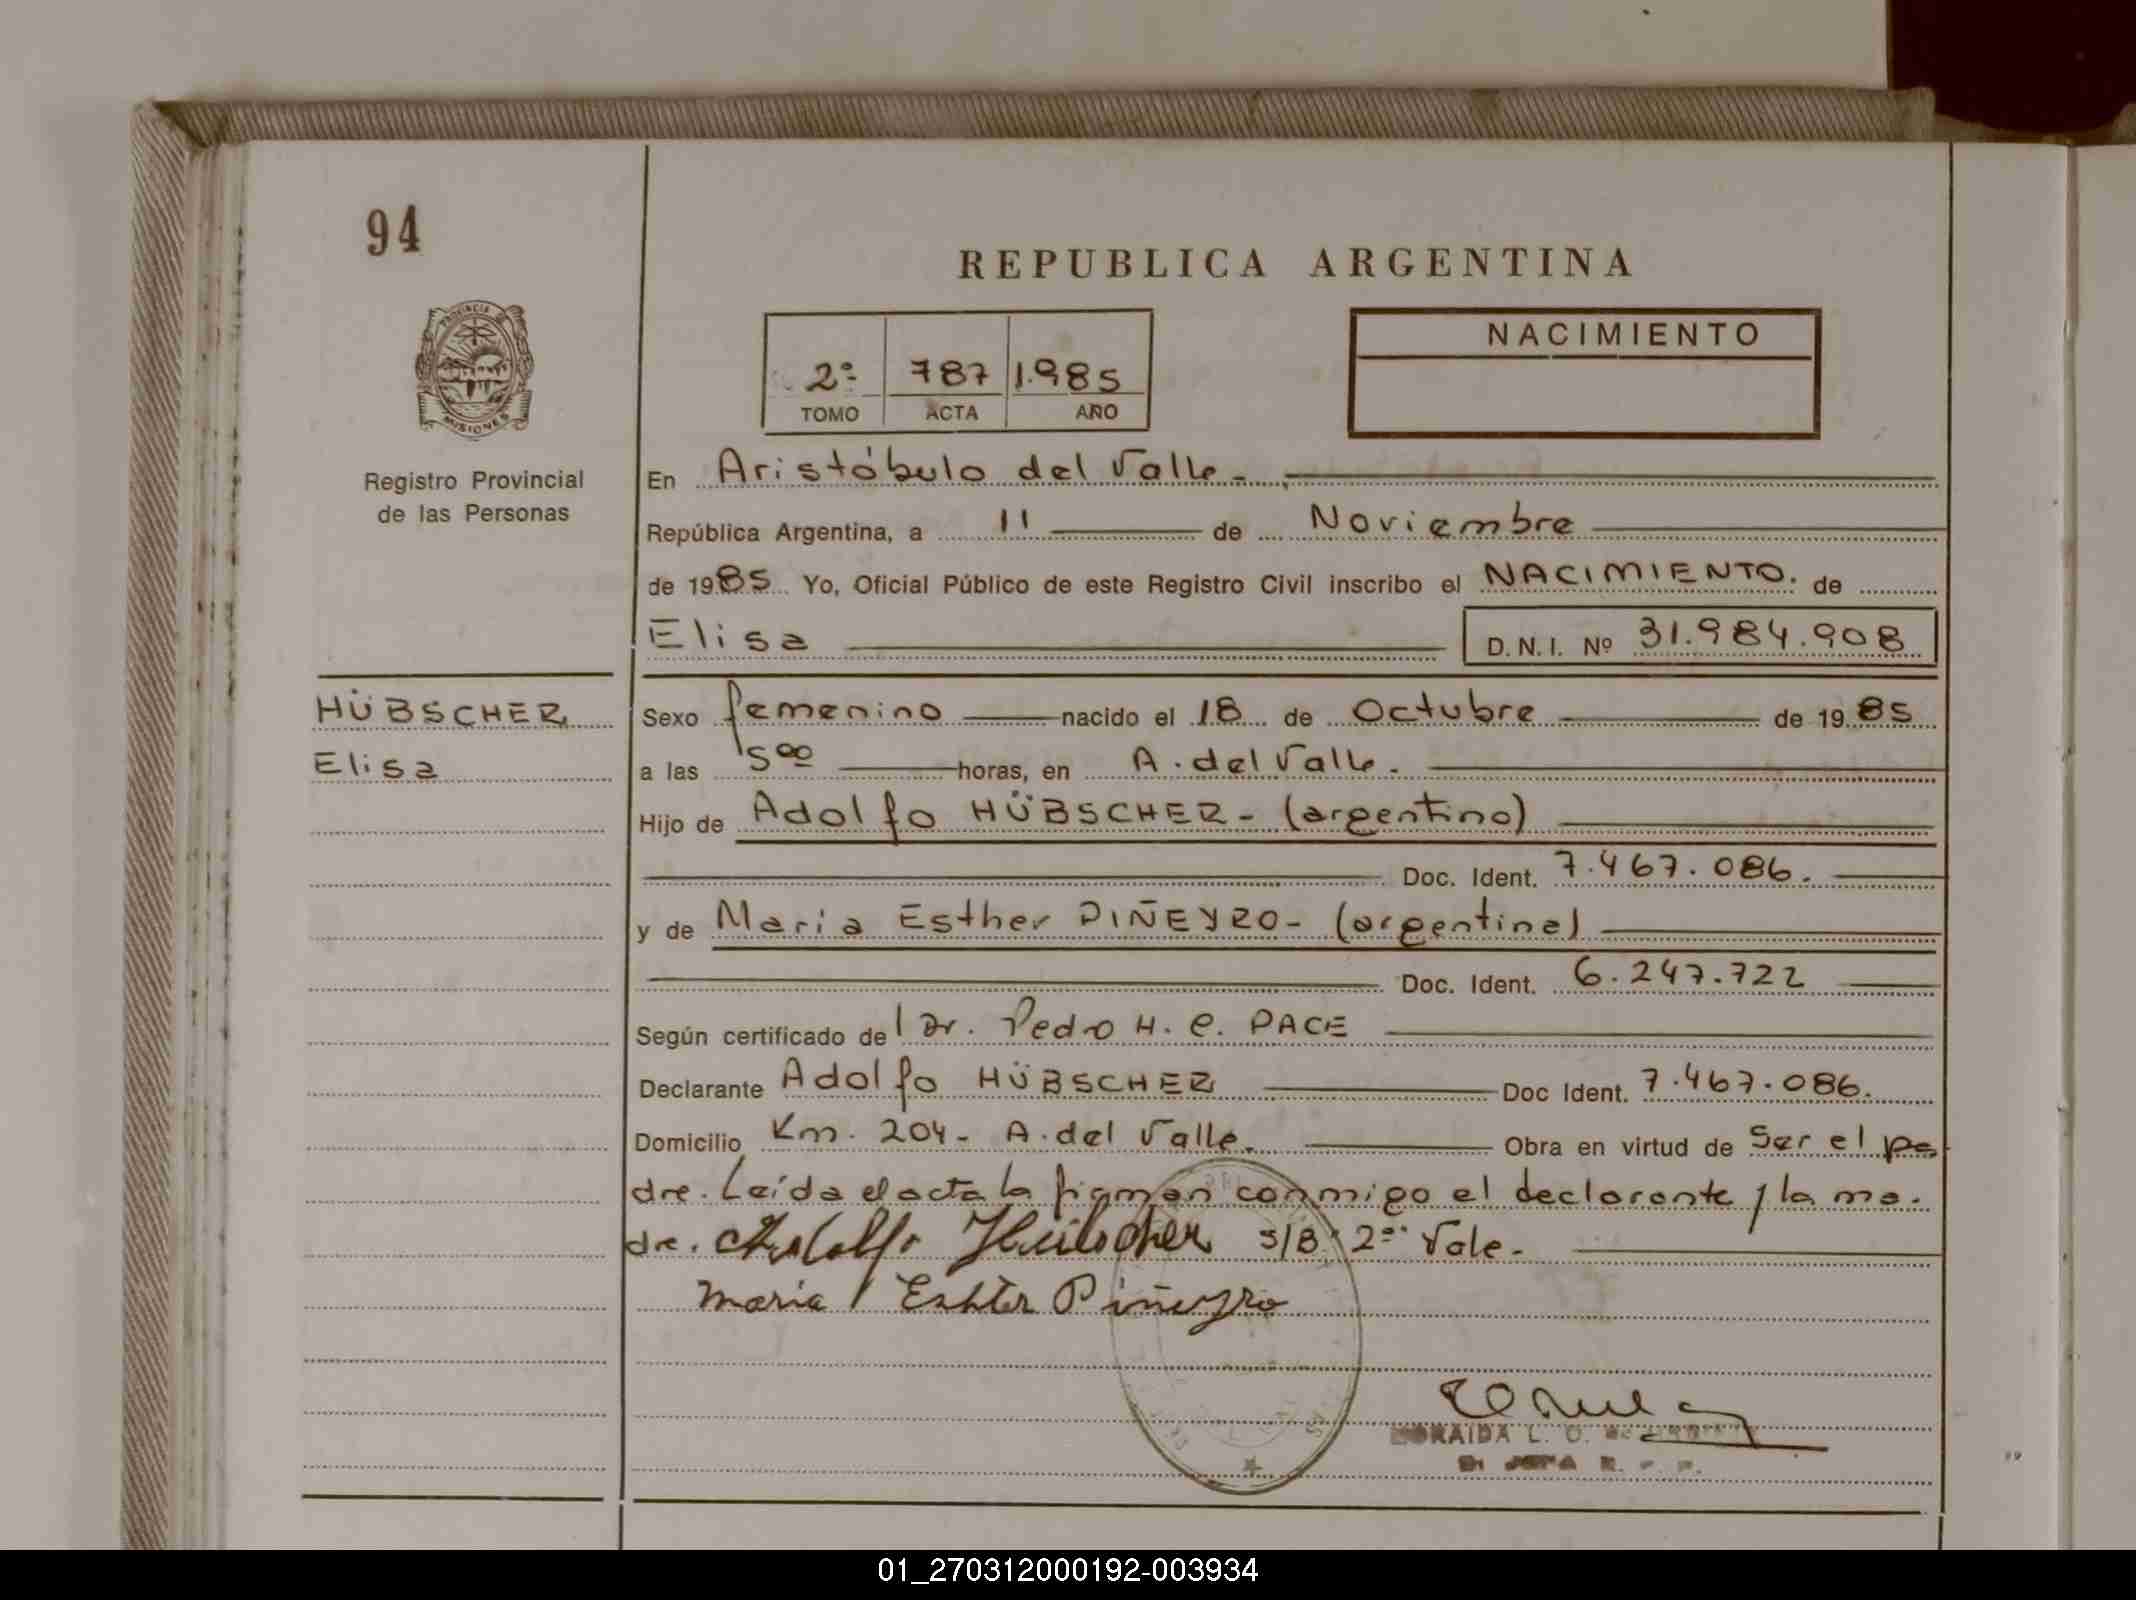 94
REPUBLICA ARGENTINA
PROVINCIA DE
MISIONES
NACIMIENTO
2º 787 1.985
TOMO ACTA AÑO
Registro Provincial
de las Personas
En Aristóbulo del Valle.-
República Argentina, a 11 de Noviembre
de 1985 Yo, Oficial Público de este Registro Civil inscribo el NACIMIENTO. de
Elisa D.N.I. Nº 31.984.908
HÜBSCHER
Elisa
Sexo femenino nacido el 18 de Octubre de 1985
a las 5ºº horas, en A. del Valle.
Hijo de Adolfo HÜBSCHER - (argentino)
Doc. Ident. 7.467.086.
y de Maria Esther PIÑEYRO- (argentina)
Doc. Ident. 6.247.722
Según certificado del Dr. Pedro H. C. PACE
Declarante Adolfo HÜBSCHER Doc Ident. 7.467.086.
Domicilio Km. 204- A. del Valle. Obra en virtud de Ser el pa
dre. Leída el acta la firman conmigo el declarante y la ma.
dre. Adolfo Hübscher S/B: 2º: Vale.-
Maria Eshter Piñeyro
ORAIDA L. O.
JEFA R. P. P.
01_270312000192-003934